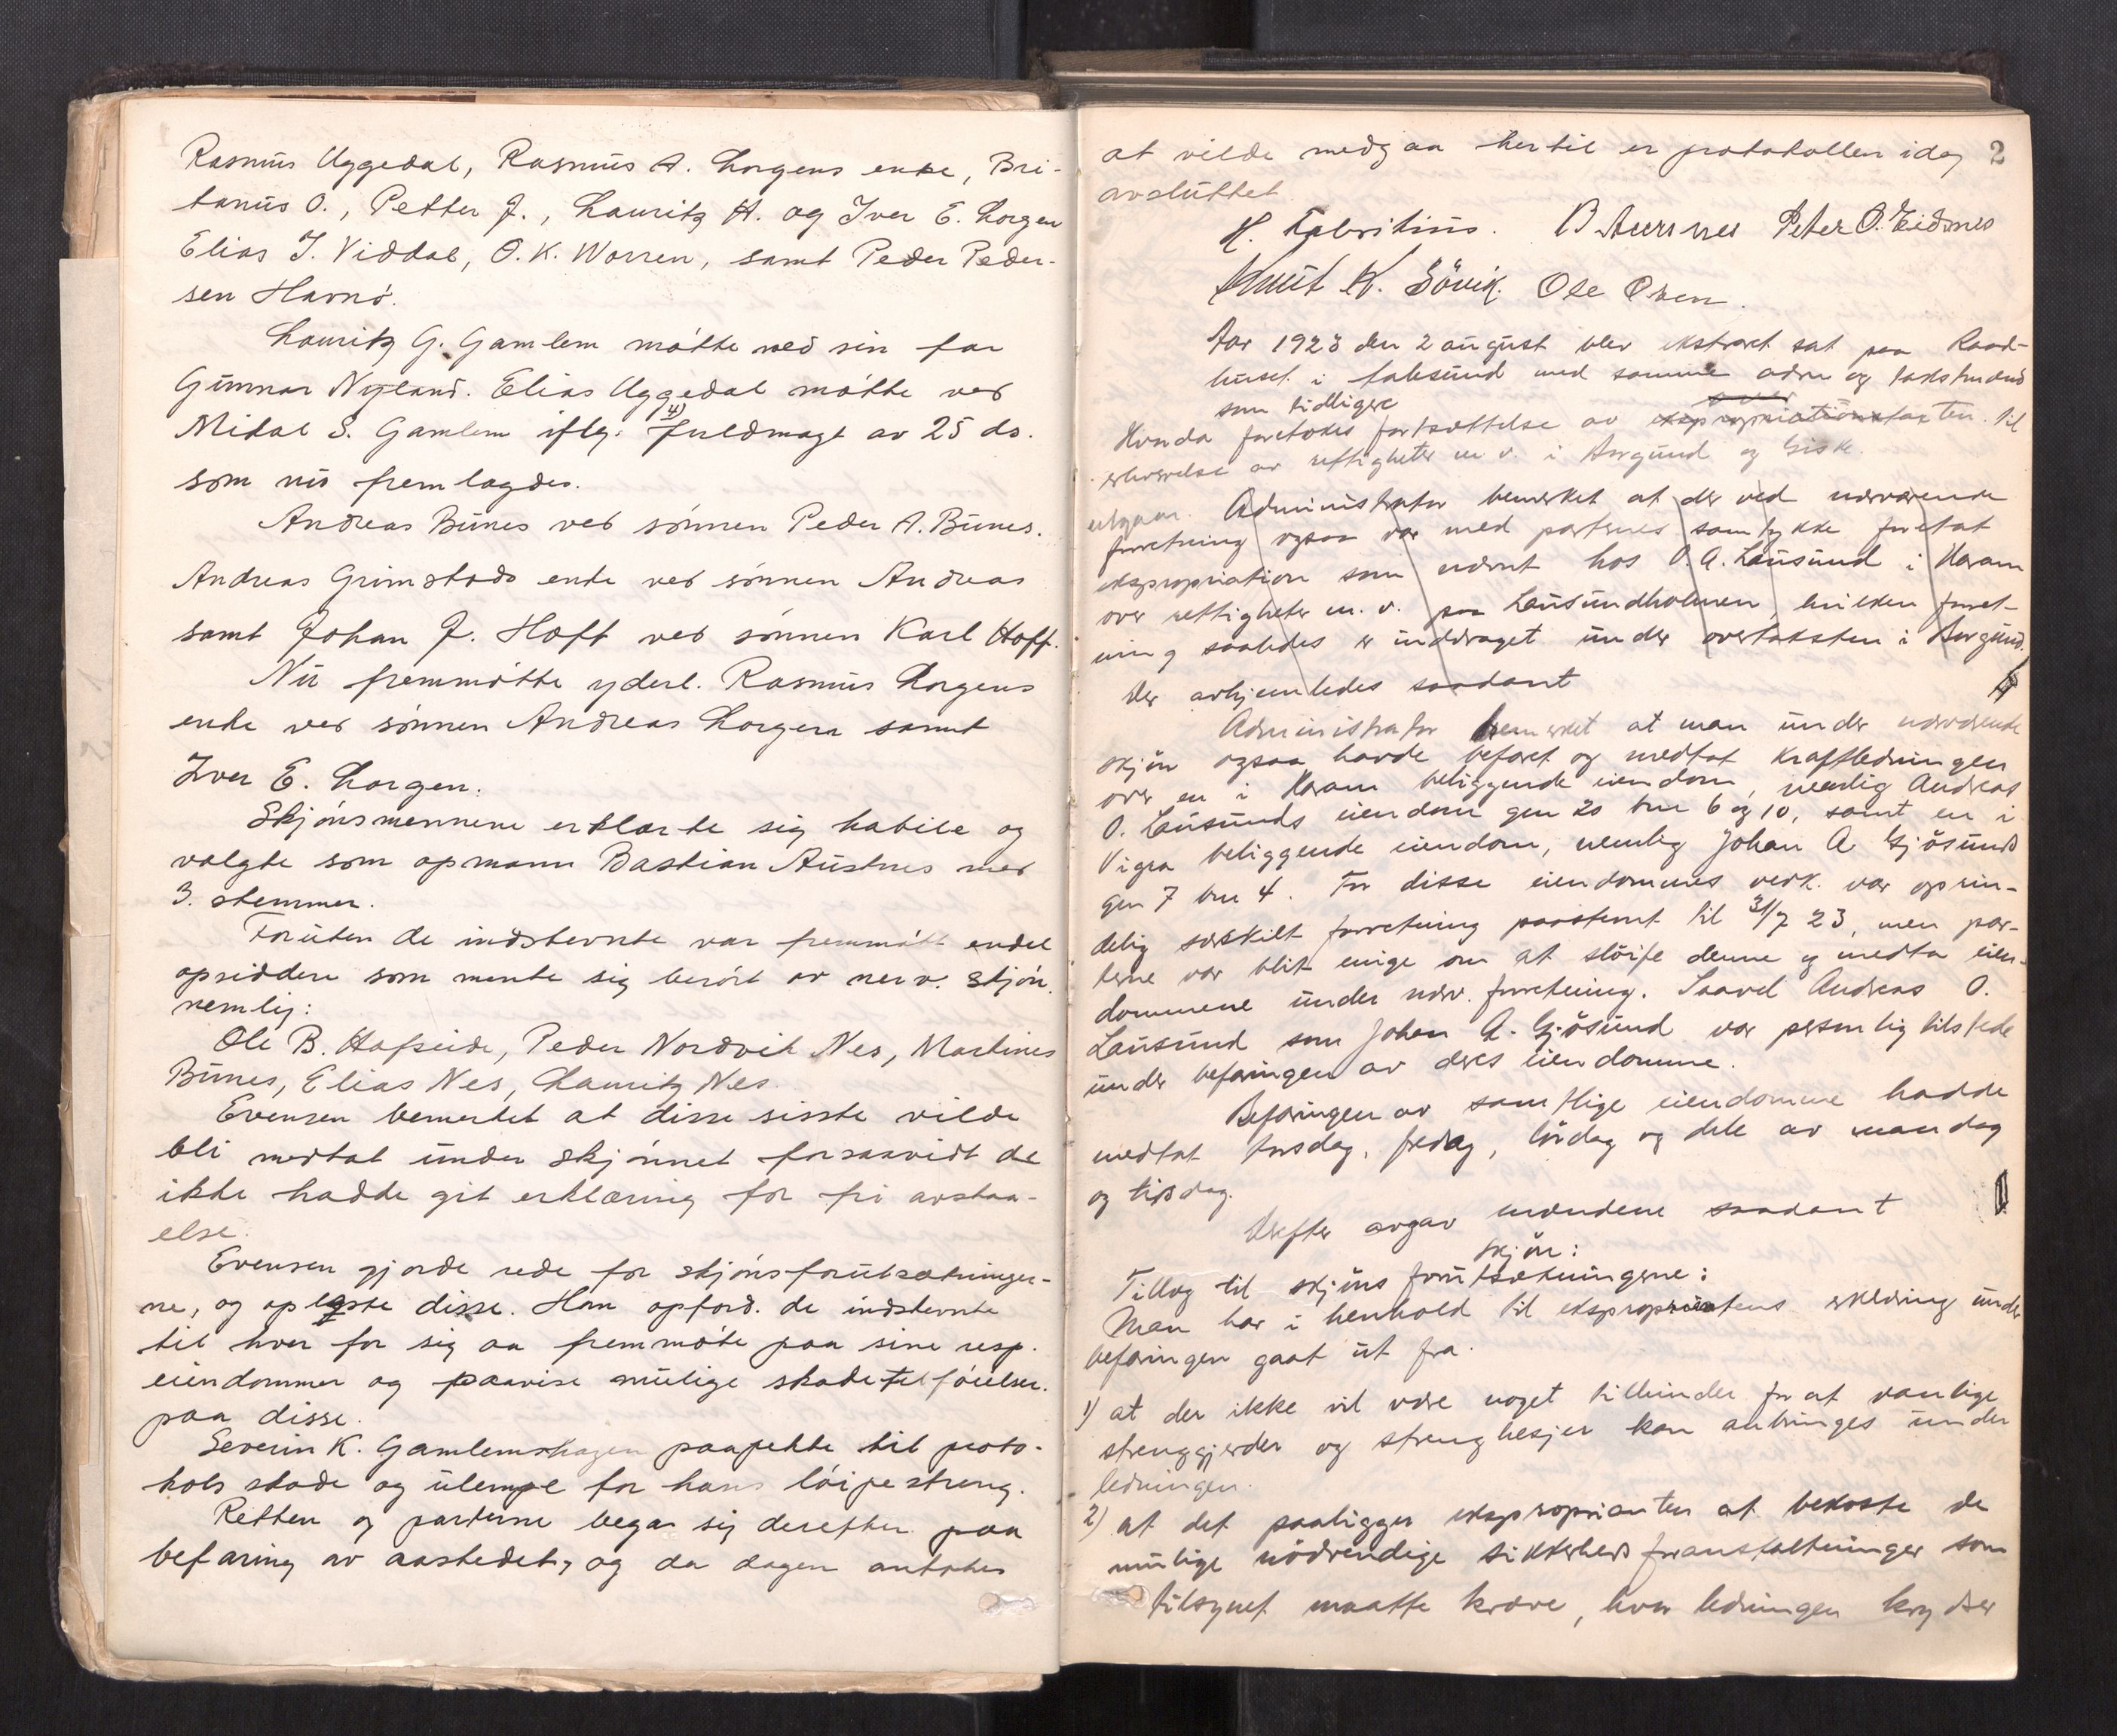 Rasmus Uggedal, Rasmus A. Longens enke, Bri-
tanus O., Petter J., Lauritz A. og Iver E. Longen
Elias J. Viddal, O. K. Worren, samt Peder Peder-
sen Havnö.
Lauritz G. Gamlem mötte ved sin far
Gunnar Nyland. Elias Uggedal mötte ved
Mikal S. Gamlem iflg. 4) fuldmagt av 25 ds.
som nu fremlagdes.
Andreas Bünes ved sönnen Peder A. Bünes.
Andreas Grimstads enke ved sönnen Andreas
samt Johan J. Hoff ved sönnen Karl Hoff.
Nu fremmötte yderl. Rasmus Longens
enke ved sönnen Andreas Longen samt
Iver E. Longen.
Skjönsmennene erklærte sig habile og
valgte som opmann Bastian Austnes med
3. stemmer.
Foruten de indstevnte var fremmött endel
opsiddere som mente sig berört av nerv. skjön,
nemlig:
Ole B. Hofseide, Peder Nordvik Nes, Martines
Bünes, Elias Nes, Lauritz Nes.
Evensen bemerket at disse sisste vilde
bli medtat under skjönnet forsaavidt de
ikke hadde git erklæring for fri avstaa-
else.
Evensen gjorde rede for skjönsforutsætninger-
ne, og oplæste disse. Han opford. de indstevnte
til hver for sig aa fremmöte paa sine resp.
eiendommer og paavise mulige skadetilföielser
paa disse.
Severin K. Gamlemshagen paapekte til proto-
kols skade og ulempe for hans löipestreng.
Retten og parterne begav sig derefter paa
befaring av aastedet, og da dagen antokes
at vilde medgaa hertil er protokollen idag 2
avsluttet.
H. Fabritius. B Austnes Peter O. Eidsnes
Knut K. Sövik. Ole Osen.
Aar 1923 den 2 august blev ekstraret sat paa Raad-
huset i Aalesund med samme adm og takstmænd
som tidligere
Hvorda foretokes fortsættelse av ekspropriationstaxten til
erhvervelse av rettigheter m. v. i Borgund og Giske
Administrator bemerket at der ved nærværende
forretning ogsaa var med parternes samtykke foretat
ekspropriation som nævnt hos O. A. Lausund i Haram
over rettigheter m. v. paa Lausundholmen, hvilken forret-
ning saaledes er inddraget under overtaksten i Borgund.
Der avhjemledes saadant
Administrator bemerket at man under nærværende
skjön ogsaa havde befaret og medtat kraftledningen
over en i Haram beliggende eiendom, nemlig Andreas
O. Lausunds eiendom gnr 20 bnr 6 og 10, samt en i
Vigra beliggende eiendom, nemlig Johan A Gjösund
gnr 7 bnr 4. For disse eiendommes verk. var oprin-
delig særskilt forretning paastemt til 31/7 23, men par-
terne var blit enige om at slöife denne og medta eien-
dommene under nærv. forretning. Saavel Andreas O.
Lausund som Johan A. Gjösund var personlig tilstede
under befaringen av deres eiendomme.
Befaringen av samtlige eiendomme hadde
medtat torsdag, fredag, lördag og dele av mandag
og tirsdag.
Derefter avgav mændene saadant
skjön:
Tillæg til skjöns forutsætningerne:
Man har i henhold til ekspropriantens erklæring under
befaringen gaat ut fra.
1) at der ikke vil være noget tilhinder for at vanlige
strenggjerder og strenghesjer kan anbringes under
ledningen.
2) at det paaligger exproprianten at bekoste de
mulige nödvendige sikkerhedsforanstaltninger som
tilsynet maatte kræve, hvor ledningen krydser